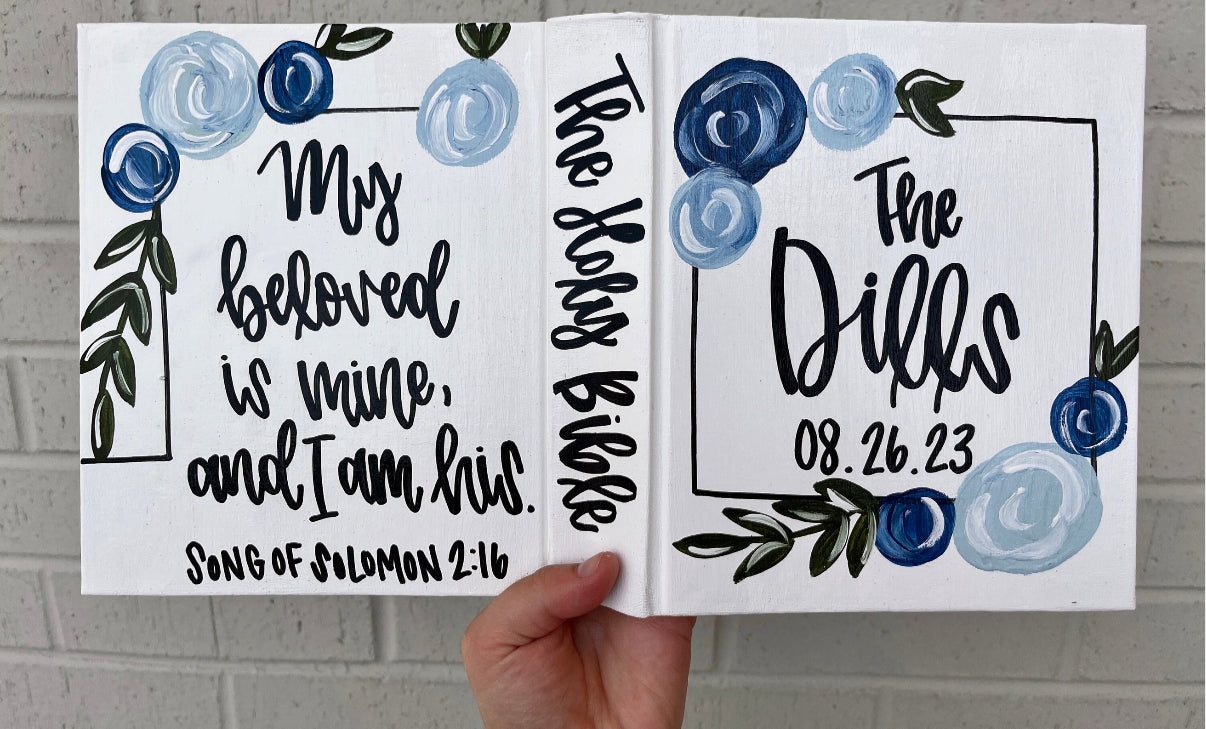 My
beloved
is mine,
and I am his.
SONG OF SOLOMON 2:16
The Holy Bible
The
Dills
08.26.23